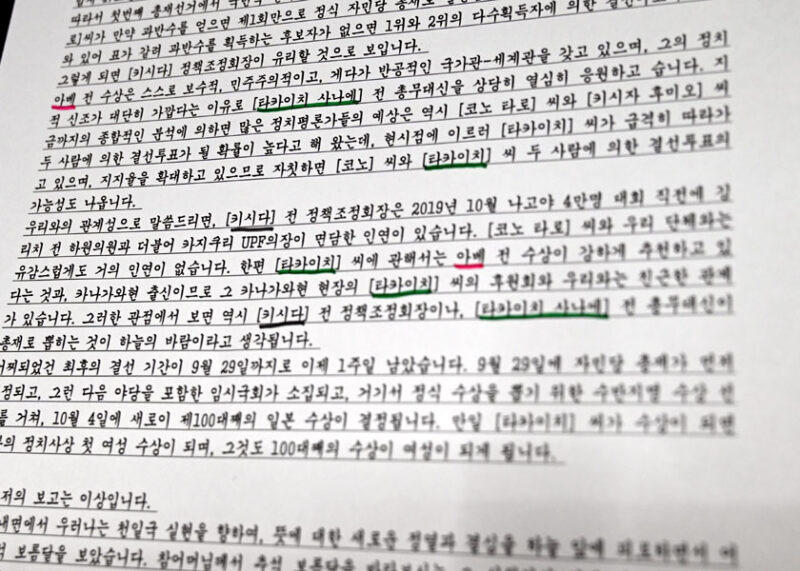 따라서 첫번째 총재선거에서
로]씨가 만약 과반수를 얻으면 제1회만으로 정식 자민당 총재로
와 있어 표가 갈려 과반수를 획득하는 후보자가 없으면 1위와 2위의 다수획득자에 의한
그렇게 되면 [키시다] 정책조정회장이 유리할 것으로 보입니다.
아베 전 수상은 스스로 보수적, 민주주의적이고, 게다가 반공적인 국가관-세계관을 갖고 있으며, 그의 정치
적 신조가 대단히 가깝다는 이유로 [타카이치 사나에] 전 총무대신을 상당히 열심히 응원하고 습니다. 지
금까지의 종합적인 분석에 의하면 많은 정치평론가들의 예상은 역시 [코노 타로] 씨와 [키시자 후미오] 씨
두 사람에 의한 결선투표가 될 확률이 높다고 해 왔는데, 현시점에 이르러 [타카이치] 씨가 급격히 따라가
고 있으며, 지지율을 확대하고 있으므로 자칫하면 [코노] 씨와 [타카이치] 씨 두 사람에 의한 결선투표의
가능성도 나옵니다.
우리와의 관계성으로 말씀드리면, [키시다] 전 정책조정회장은 2019년 10월 나고야 4만명 대회 직전에 깅
리치 전 하원의원과 더불어 카지쿠리 UPF의장이 면담한 인연이 있습니다. [코노 타로] 씨와 우리 단체와는
유감스럽게도 거의 인연이 없습니다. 한편 [타카이치] 씨에 관해서는 아베 전 수상이 강하게 추천하고 있
다는 것과, 카나가와현 출신이므로 그 카나가와현 현장의 [타카이치] 씨의 후원회와 우리와는 친근한 관계
가 있습니다. 그러한 관점에서 보면 역시 [키시다] 전 정책조정회장이나, [타카이치 사나에] 전 총무대신이
총재로 뽑히는 것이 하늘의 바람이라고 생각됩니다.
어찌되었건 최후의 결선 기간이 9월 29일까지로 이제 1주일 남았습니다. 9월 29일에 자민당 총재가
정되고, 그런 다음 야당을 포함한 임시국회가 소집되고, 거기서 정식 수상을 뽑기 위한 수반지명 수상
를 거쳐, 10월 4일에 새로이 제100대째의 일본 수상이 결정됩니다. 만일 [타카이치] 씨가 수상이 되면
의 정치사상 첫 여성 수상이 되며, 그것도 100대째의 수상이 여성이 되게 됩니다.
저의 보고는 이상입니다.
내면에서 우러나는 천일국 실현을 향하여, 뜻에 대한 새로운 정열과 결심을 하늘 앞에
보름달을 보았습니다. 참어머님께서 추석 보름달을